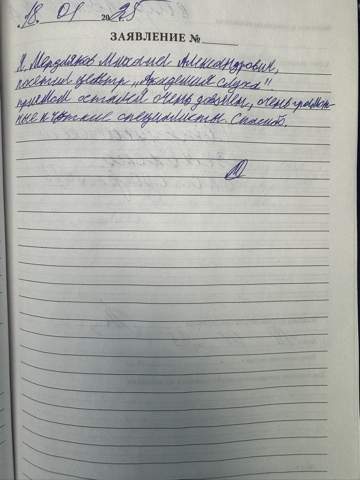 18. 01 2025
ЗАЯВЛЕНИЕ №
Я. Мердляков Михаил Александрович,
посетил центр „Академия слуха".
приёмом остался очень доволен, очень грамот-
ные и чуткие специалисты. Спасибо.